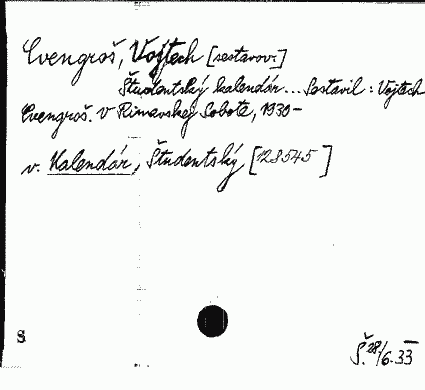 Cvengroš, Vojtech [sestavov.]
Študentský kalendár... Sestavil: Vojtech
Cvengroš. V Rimavskej Sobote, 1930-
v. Kalendár, Študentský [128545]
S
Š. 28/6.33